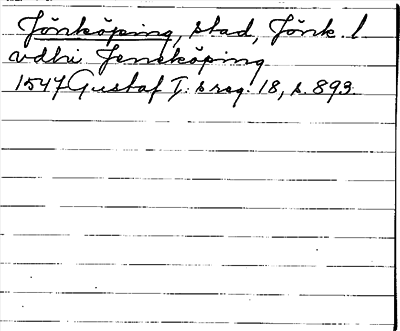 Jönköping, stad, Jönk. l
vdhi Jeneköping
1547 Gustaf I:s reg. 18, s. 893.